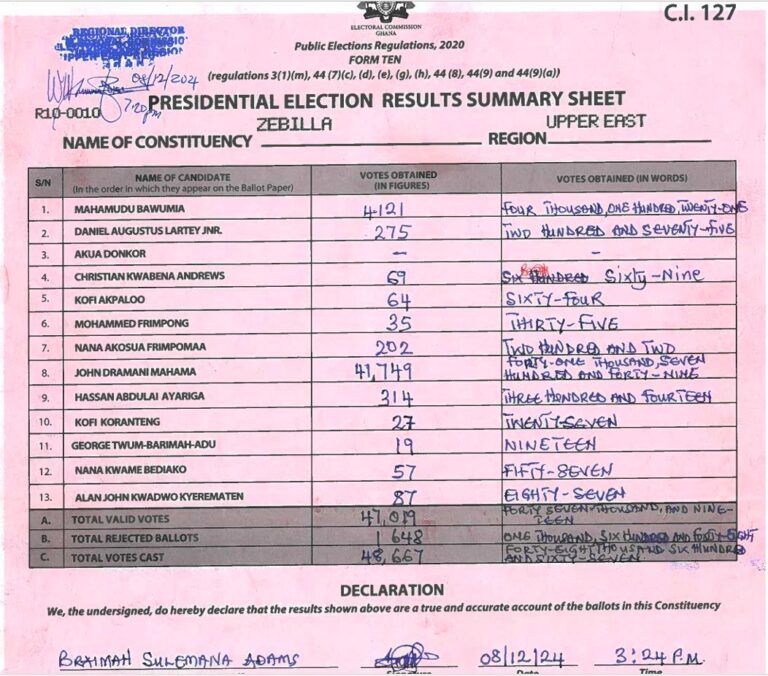 C.I. 127
ELECTORAL COMMISSION
GHANA
REGIONAL DIRECTOR
Public Elections Regulations, 2020
FORM TEN
(regulations 3(1)(m), 44 (7)(c), (d), (e), (g), (h), 44 (8), 44(9) and 44(9)(a))
08/12/2024
7:20pm
R10-0010
PRESIDENTIAL ELECTION RESULTS SUMMARY SHEET
NAME OF CONSTITUENCY ZEBILLA REGION UPPER EAST
S/N NAME OF CANDIDATE (In the order in which they appear on the Ballot Paper) VOTES OBTAINED (IN FIGURES) VOTES OBTAINED (IN WORDS)
1. MAHAMUDU BAWUMIA 4121 FOUR THOUSAND, ONE HUNDRED, TWENTY-ONE
2. DANIEL AUGUSTUS LARTEY JNR. 275 TWO HUNDRED AND SEVENTY-FIVE
3. AKUA DONKOR – –
4. CHRISTIAN KWABENA ANDREWS 69 SIX HUNDRED SIXTY-NINE
5. KOFI AKPALOO 64 SIXTY-FOUR
6. MOHAMMED FRIMPONG 35 THIRTY-FIVE
7. NANA AKOSUA FRIMPOMAA 202 TWO HUNDRED AND TWO
8. JOHN DRAMANI MAHAMA 41,749 FORTY-ONE THOUSAND, SEVEN HUNDRED AND FORTY-NINE
9. HASSAN ABDULAI AYARIGA 314 THREE HUNDRED AND FOURTEEN
10. KOFI KORANTENG 27 TWENTY-SEVEN
11. GEORGE TWUM-BARIMAH-ADU 19 NINETEEN
12. NANA KWAME BEDIAKO 57 FIFTY-SEVEN
13. ALAN JOHN KWADWO KYEREMATEN 87 EIGHTY-SEVEN
A. TOTAL VALID VOTES 47,019 FORTY SEVEN THOUSAND, AND NINETEEN
B. TOTAL REJECTED BALLOTS 1 648 ONE THOUSAND, SIX HUNDRED AND FORTY-EIGHT
C. TOTAL VOTES CAST 48,667 FORTY-EIGHT THOUSAND SIX HUNDRED AND SIXTY-SEVEN
DECLARATION
We, the undersigned, do hereby declare that the results shown above are a true and accurate account of the ballots in this Constituency
BRAIMAH SULEMANA ADAMS 08/12/24 3:24 P.M.
Signature Date Time